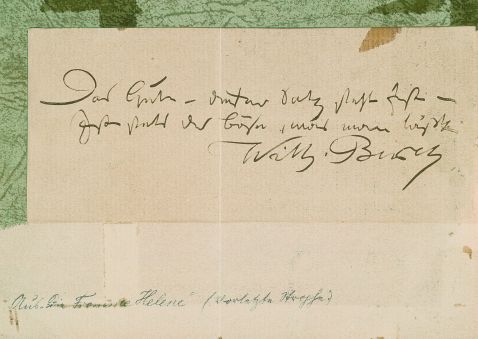 Das Gute – dieser Satz steht fest –
Ist stets das Böse, was man läßt.
Wilh. Busch
Aus: Die Fromme Helene (vorletzte Strophe)